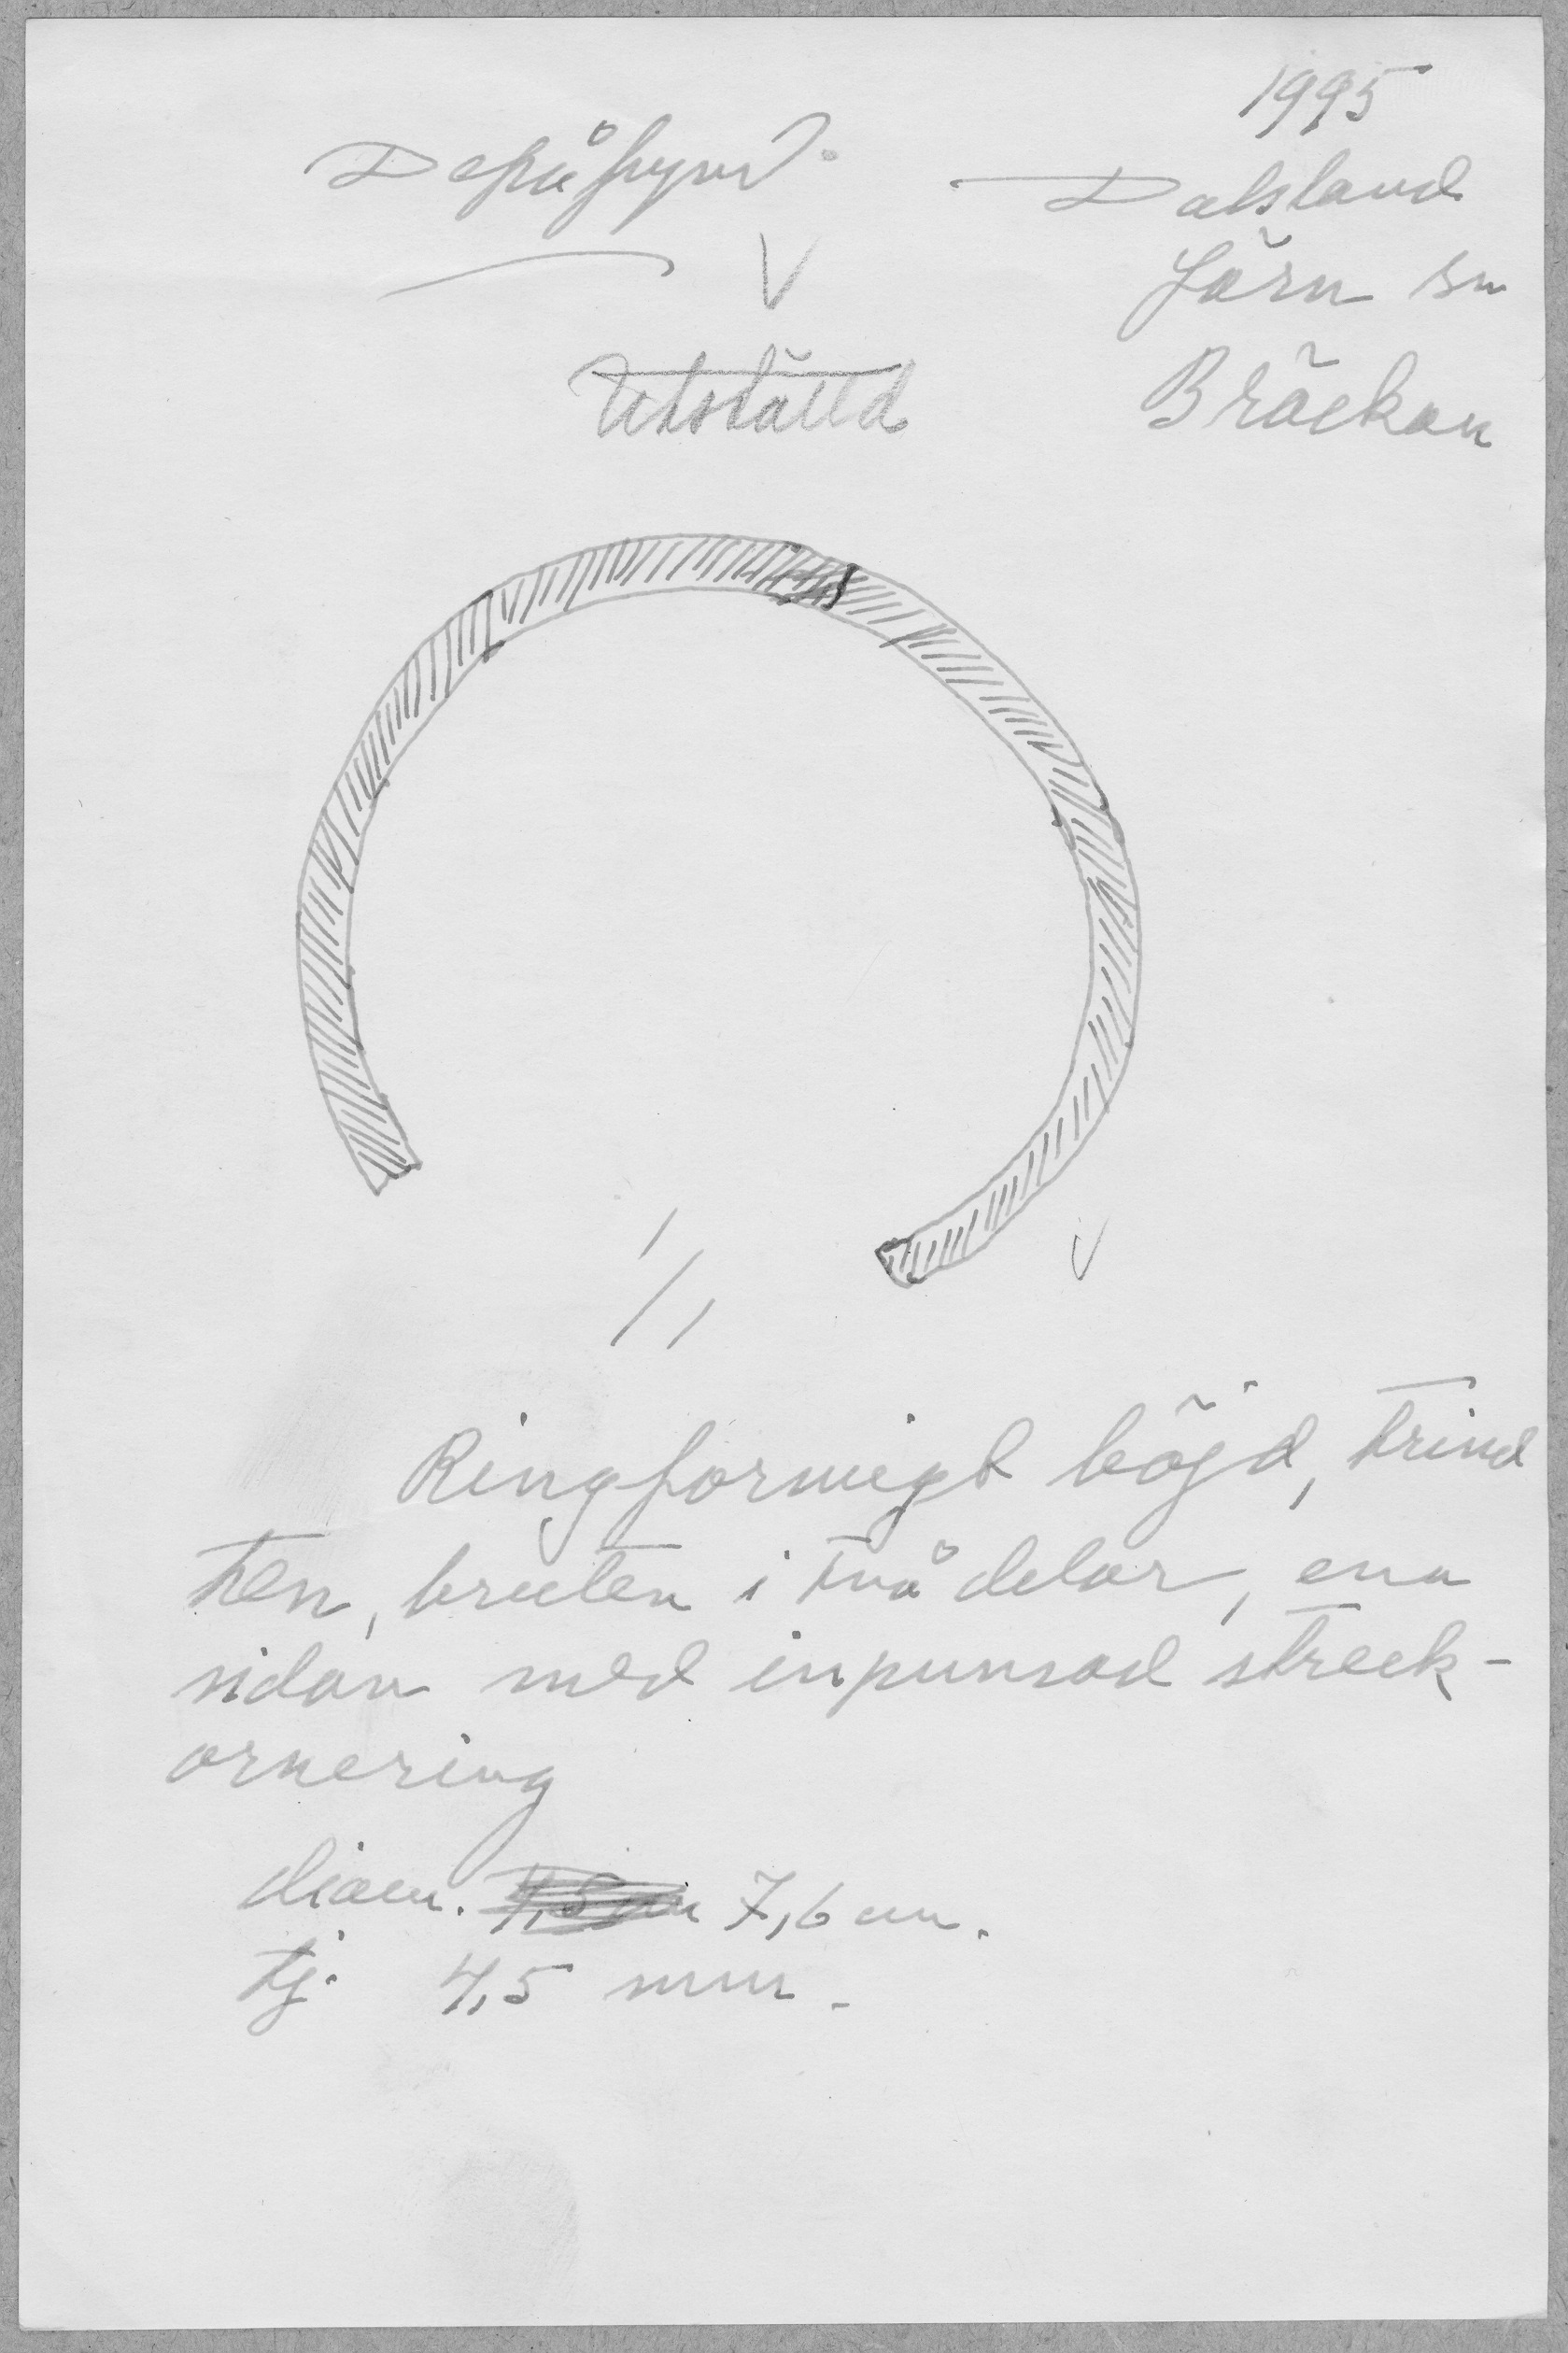 1995
Depåfynd.
Dalsland
Järn sn
V
Utställd
Bräckan
1/1
V
Ringformigt böjd, trind
ten, bruten i två delar, ena
sidan med inpunsad streck-
ornering
diam. 7,6 cm.
tj. 4,5 mm.